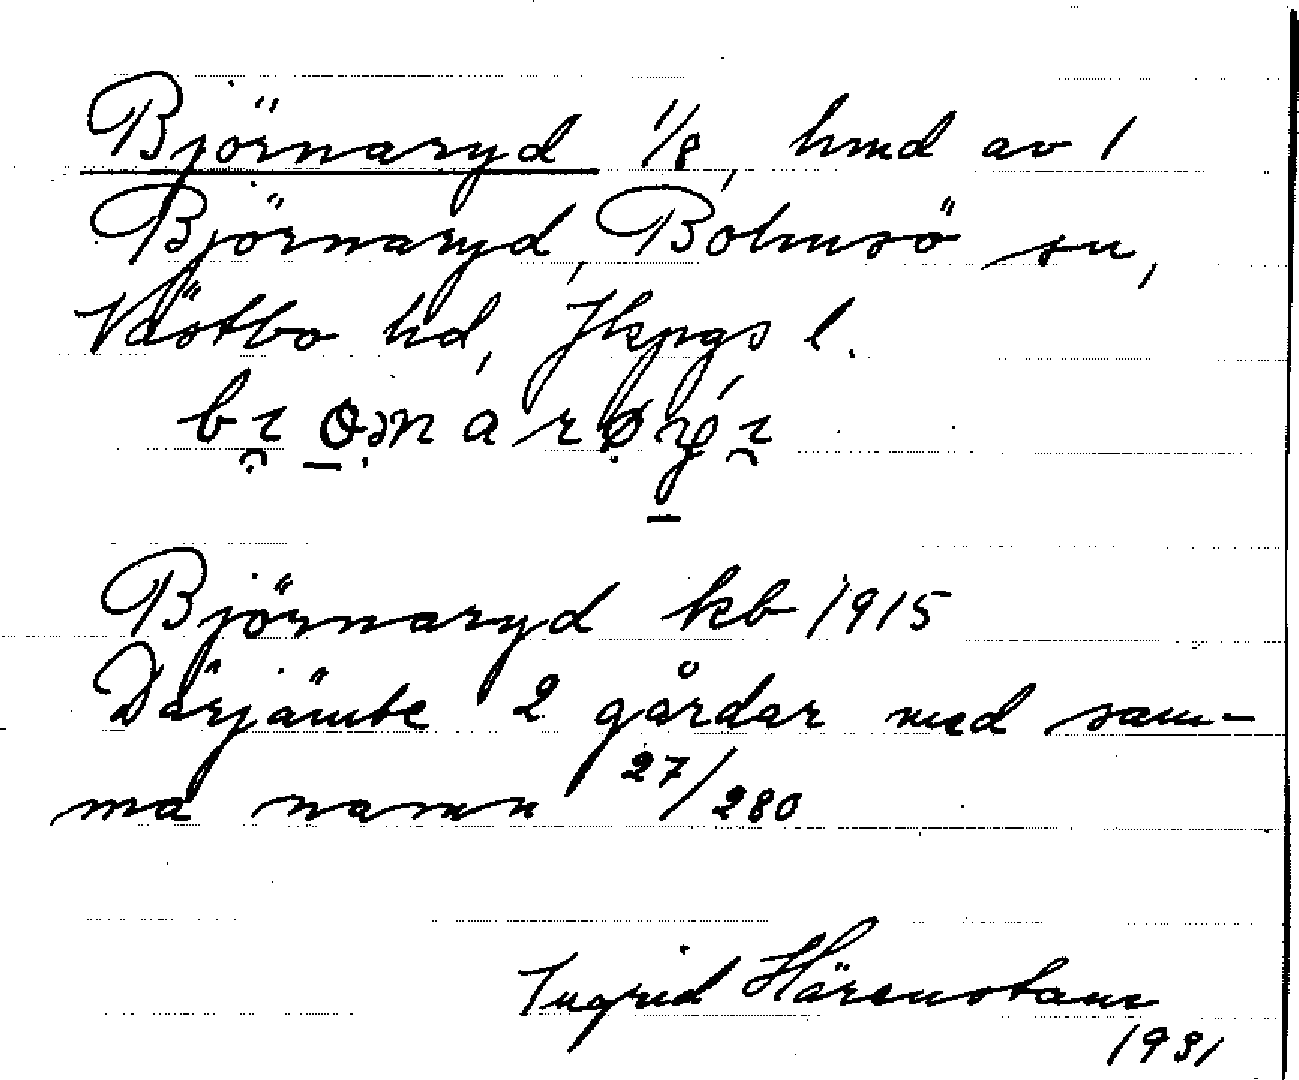 Björnaryd 1/8, hmd av 1
Björnaryd, Bolmsö sn,
Västbo hd, Jkpgs l.
Björnaryd kb 1915
Därjämte 2 gårdar med sam-
ma namn 27/280
Ingrid Härenstam
1931